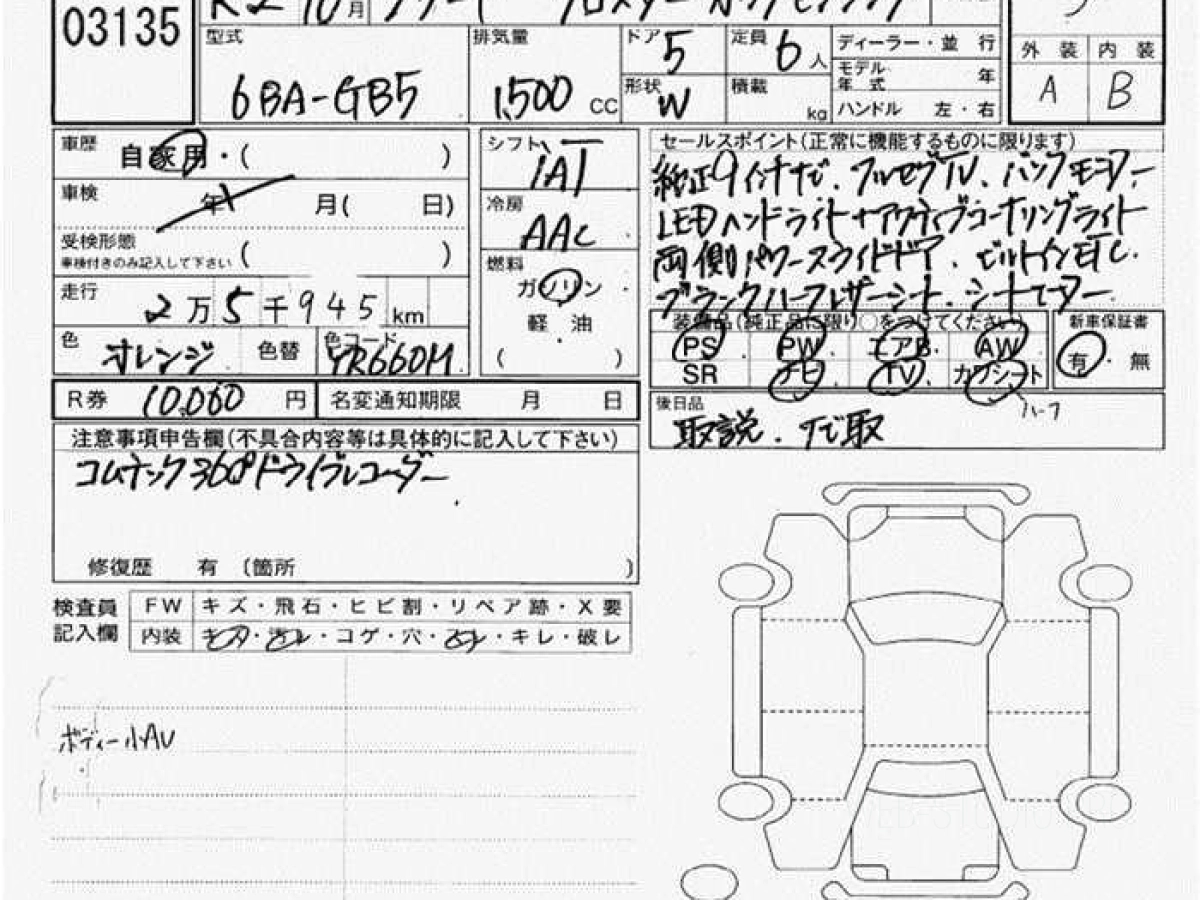 03135
R2 10月
型式
6BA-GB5
排気量
1,500 CC
ドア 5
定員 6人
形状 W
積載 kg
ディーラー・並行
モデル年式 年
ハンドル 左・右
外装 内装
A B
車歴 自家用・( )
車検 年 月( 日)
受検形態
車検付きのみ記入して下さい ( )
走行 2万5千945km
色 オレンジ 色替 色コード YR660M
シフト IAT
冷房 AAC
燃料
ガソリン
軽油
( )
セールスポイント(正常に機能するものに限ります)
純正9インチナビ、フルセグTV、バックモニター
LEDヘッドライト+アクティブコーナリングライト
両側パワースライドドア、ビルトインETC.
ブラックハーフレザーシート、シートヒーター
装備品(純正品に限り○をつけてください)
PS・PW・エアB・AW
SR ナビ・TV・カワシート
ハーフ
新車保証書
有・無
R券 10,060円 名変通知期限 月 日
後日品
取説、ナビ取
注意事項申告欄(不具合内容等は具体的に記入して下さい)
コムテック360°ドライブレコーダー
修復歴 有 〔箇所 )
検査員記入欄
FW キズ・飛石・ヒビ割・リペア跡・X要
内装 キズ・汚レ・コゲ・穴・ ・キレ・破レ
ボディー小AU